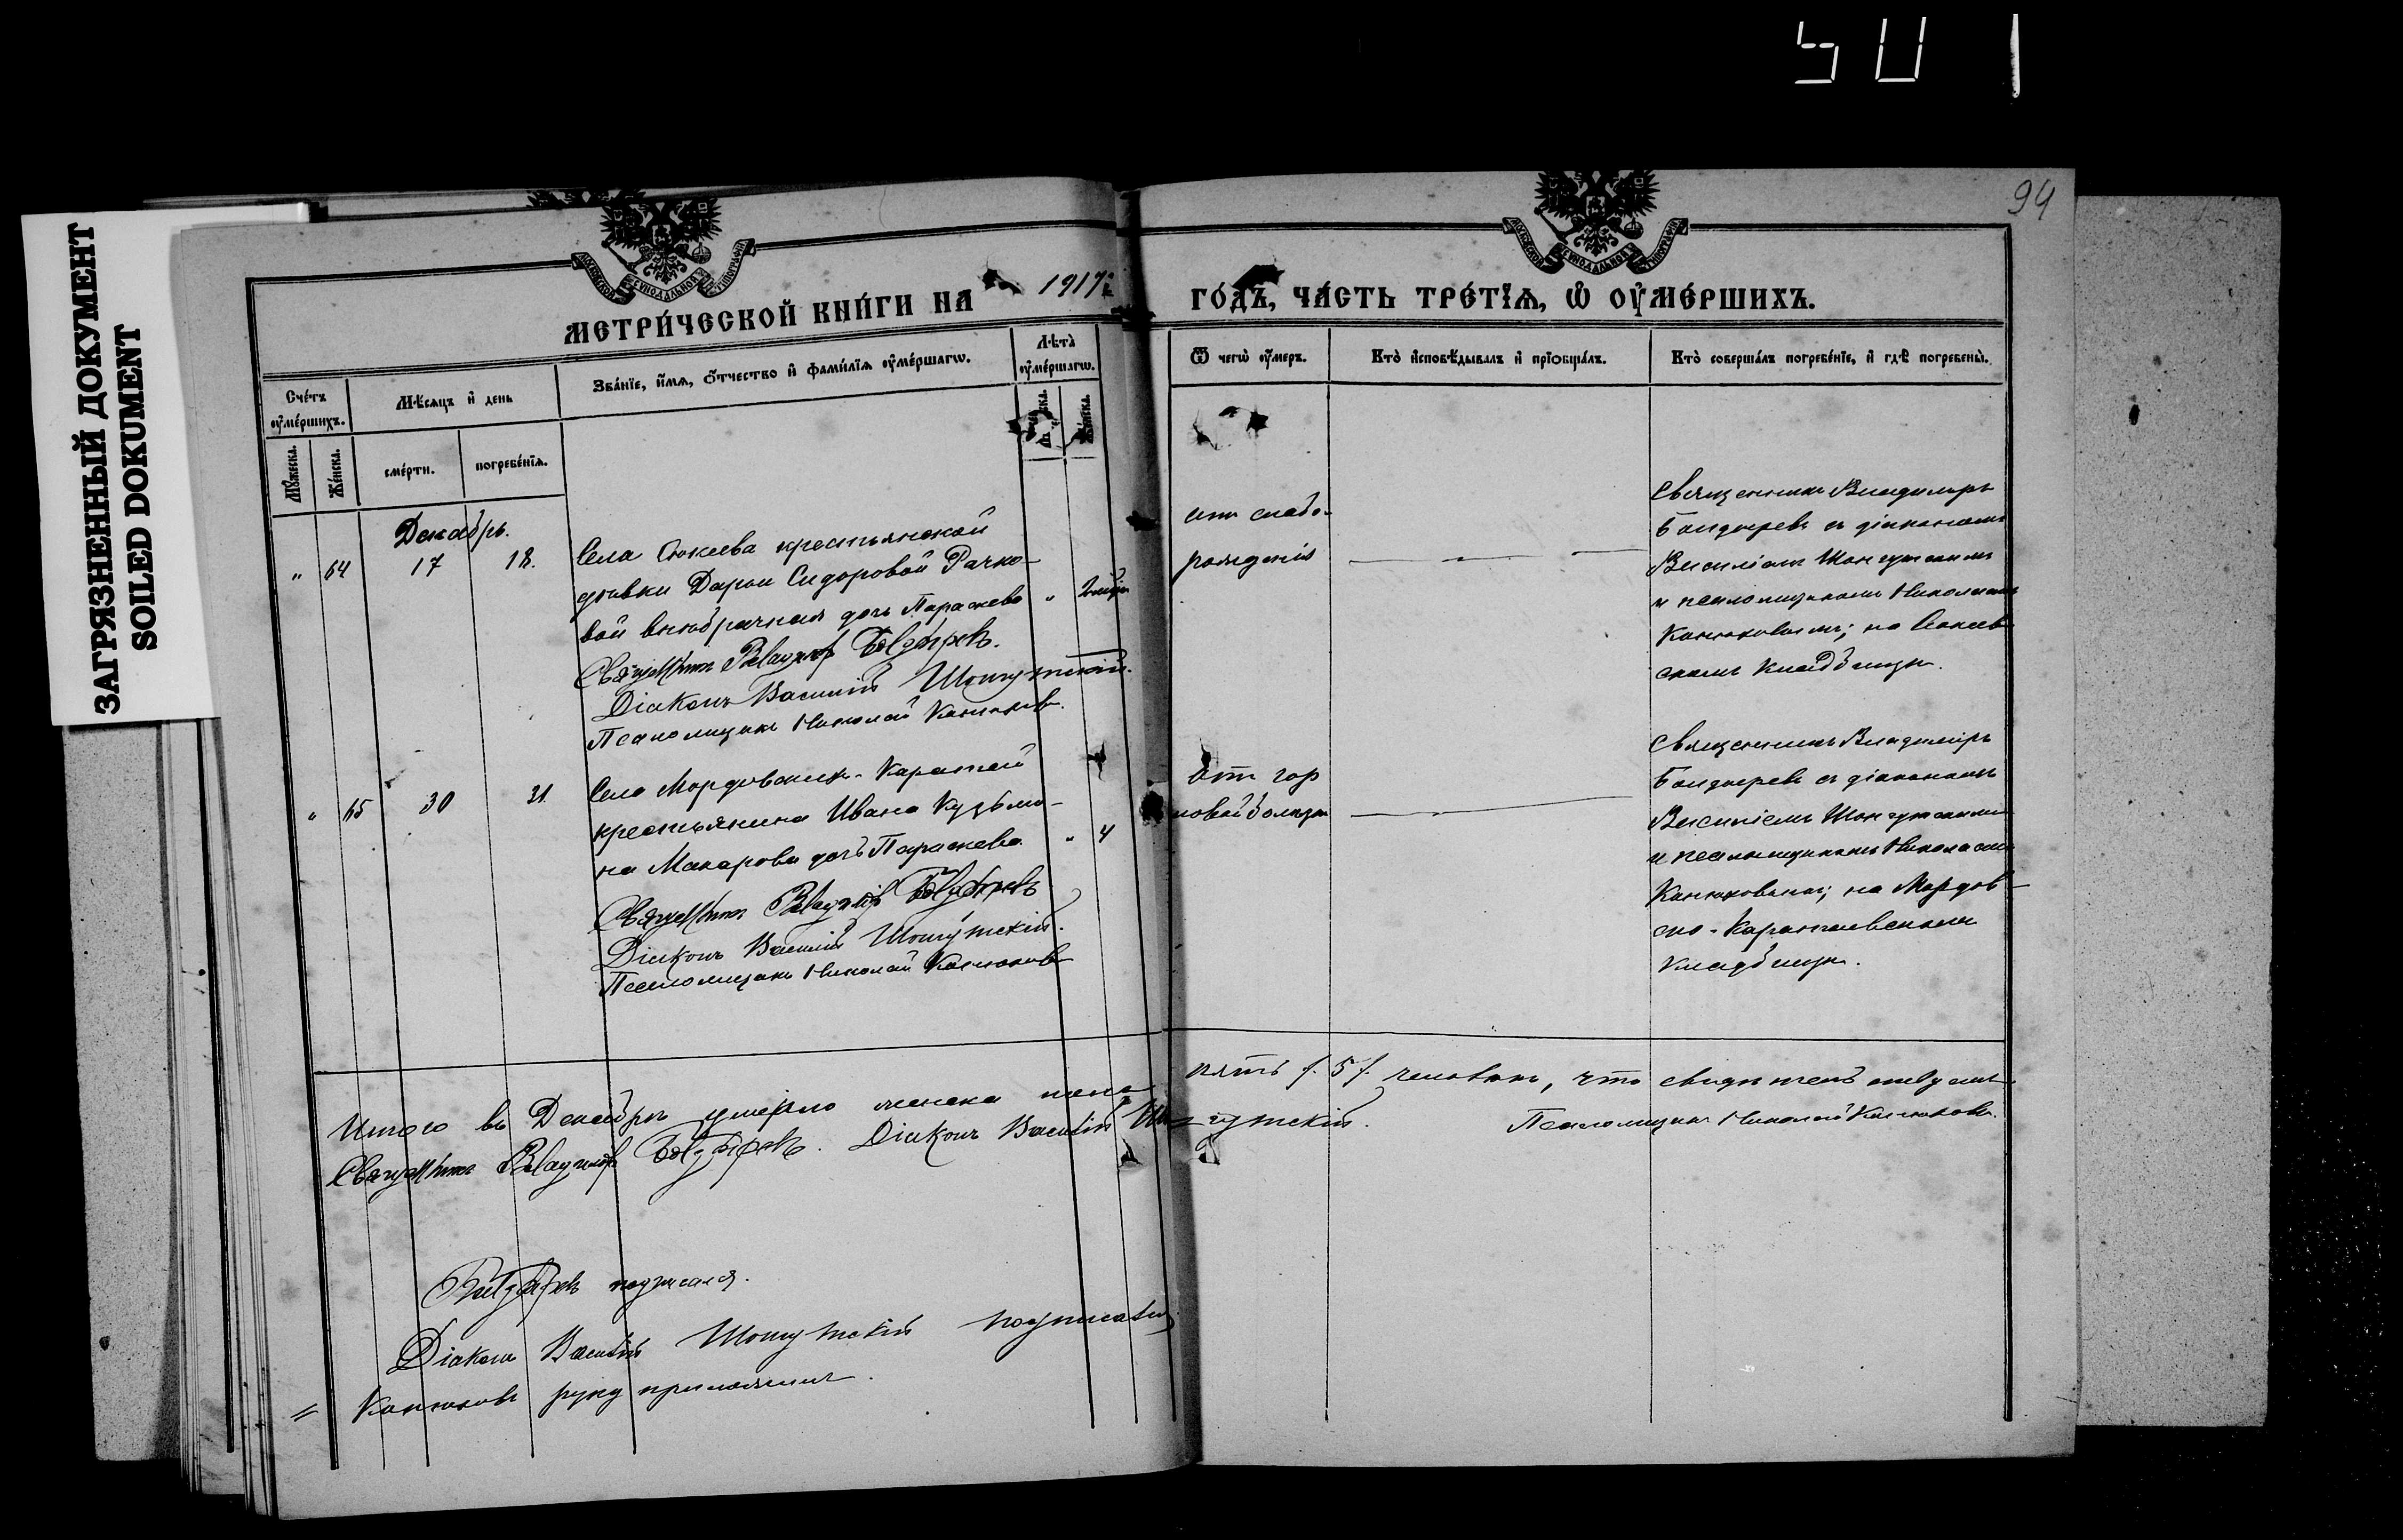 501
ЗАГРЯЗНЕННЫЙ ДОКУМЕНТ
SOILED DOKUMENT
94
МОСКОВСКОЙ СѴНОДАЛЬНОЙ ТИПОГРАФІИ
МОСКОВСКОЙ СѴНОДАЛЬНОЙ ТИПОГРАФІИ
МЕТРИ́ЧЕСКОЙ КНИ́ГИ НА 1917 г.
ГО́ДЪ, ЧА́СТЬ ТРЕ́ТЇѦ, Ѡ҆ ОУ҆МЕ́РШИХЪ.
Сче́тъ оу҆ме́ршихъ.
Мꙋ́жеска.
Же́нска.
Мѣ́сѧцъ и҆ день
сме́рти.
погребе́нїѧ.
Зва́нїе, и҆́мѧ, ѻ҆́тчество и҆ фами́лїѧ оу҆ме́ршагѡ.
Лѣ́та оу҆ме́ршагѡ.
Мꙋ́жеска.
Же́нска.
Ѿ чегѡ̀ оу҆́меръ.
Кто̀ и҆сповѣ́дывалъ и҆ прїѡбща́лъ.
Кто̀ соверша́лъ погребе́нїе, и҆ гдѣ̀ погребены̀.
Декабрь.
" 64 17 18.
Села Сюкеева крестьянской
дѣвки Дарьи Сидоровой Рачко-
вой внѣбрачная дочь Параскева
Священникъ Владиміръ Болдыревъ.
Діаконъ Василій Шонгутскій.
Псаломщикъ Николай Канюковъ.
отъ слабо-
рожденія
Священникъ Владиміръ
Болдыревъ съ діакономъ
Василіемъ Шонгутскимъ
и псаломщикомъ Николаемъ
Канюковымъ; на Сюкеев-
скомъ кладбищѣ.
" 65 30 31.
Села Мордовскихъ-Каратай
крестьянина Ивана Кузьми-
на Макарова дочь Параскева " 4
Священникъ Владиміръ Болдыревъ
Діаконъ Василій Шонгутскій.
Псаломщикъ Николай Канюковъ
отъ гор
ловой болѣзни
Священникъ Владиміръ
Болдыревъ съ діакономъ
Василіемъ Шонгутскимъ
и псаломщикомъ Николаемъ
Канюковымъ; на Мордов-
ско-Каратаевскомъ
кладбищѣ.
Итого въ Декабрѣ умерло женска пола пять /5/ человѣкъ, что свидѣтельствуемъ
Священникъ Владиміръ Болдыревъ. Діаконъ Василій Шонгутскій. Псаломщикъ Николай Канюковъ.
Болдыревъ подписался.
Діаконъ Василій Шонгутскій подписался
Канюковъ руку приложилъ.